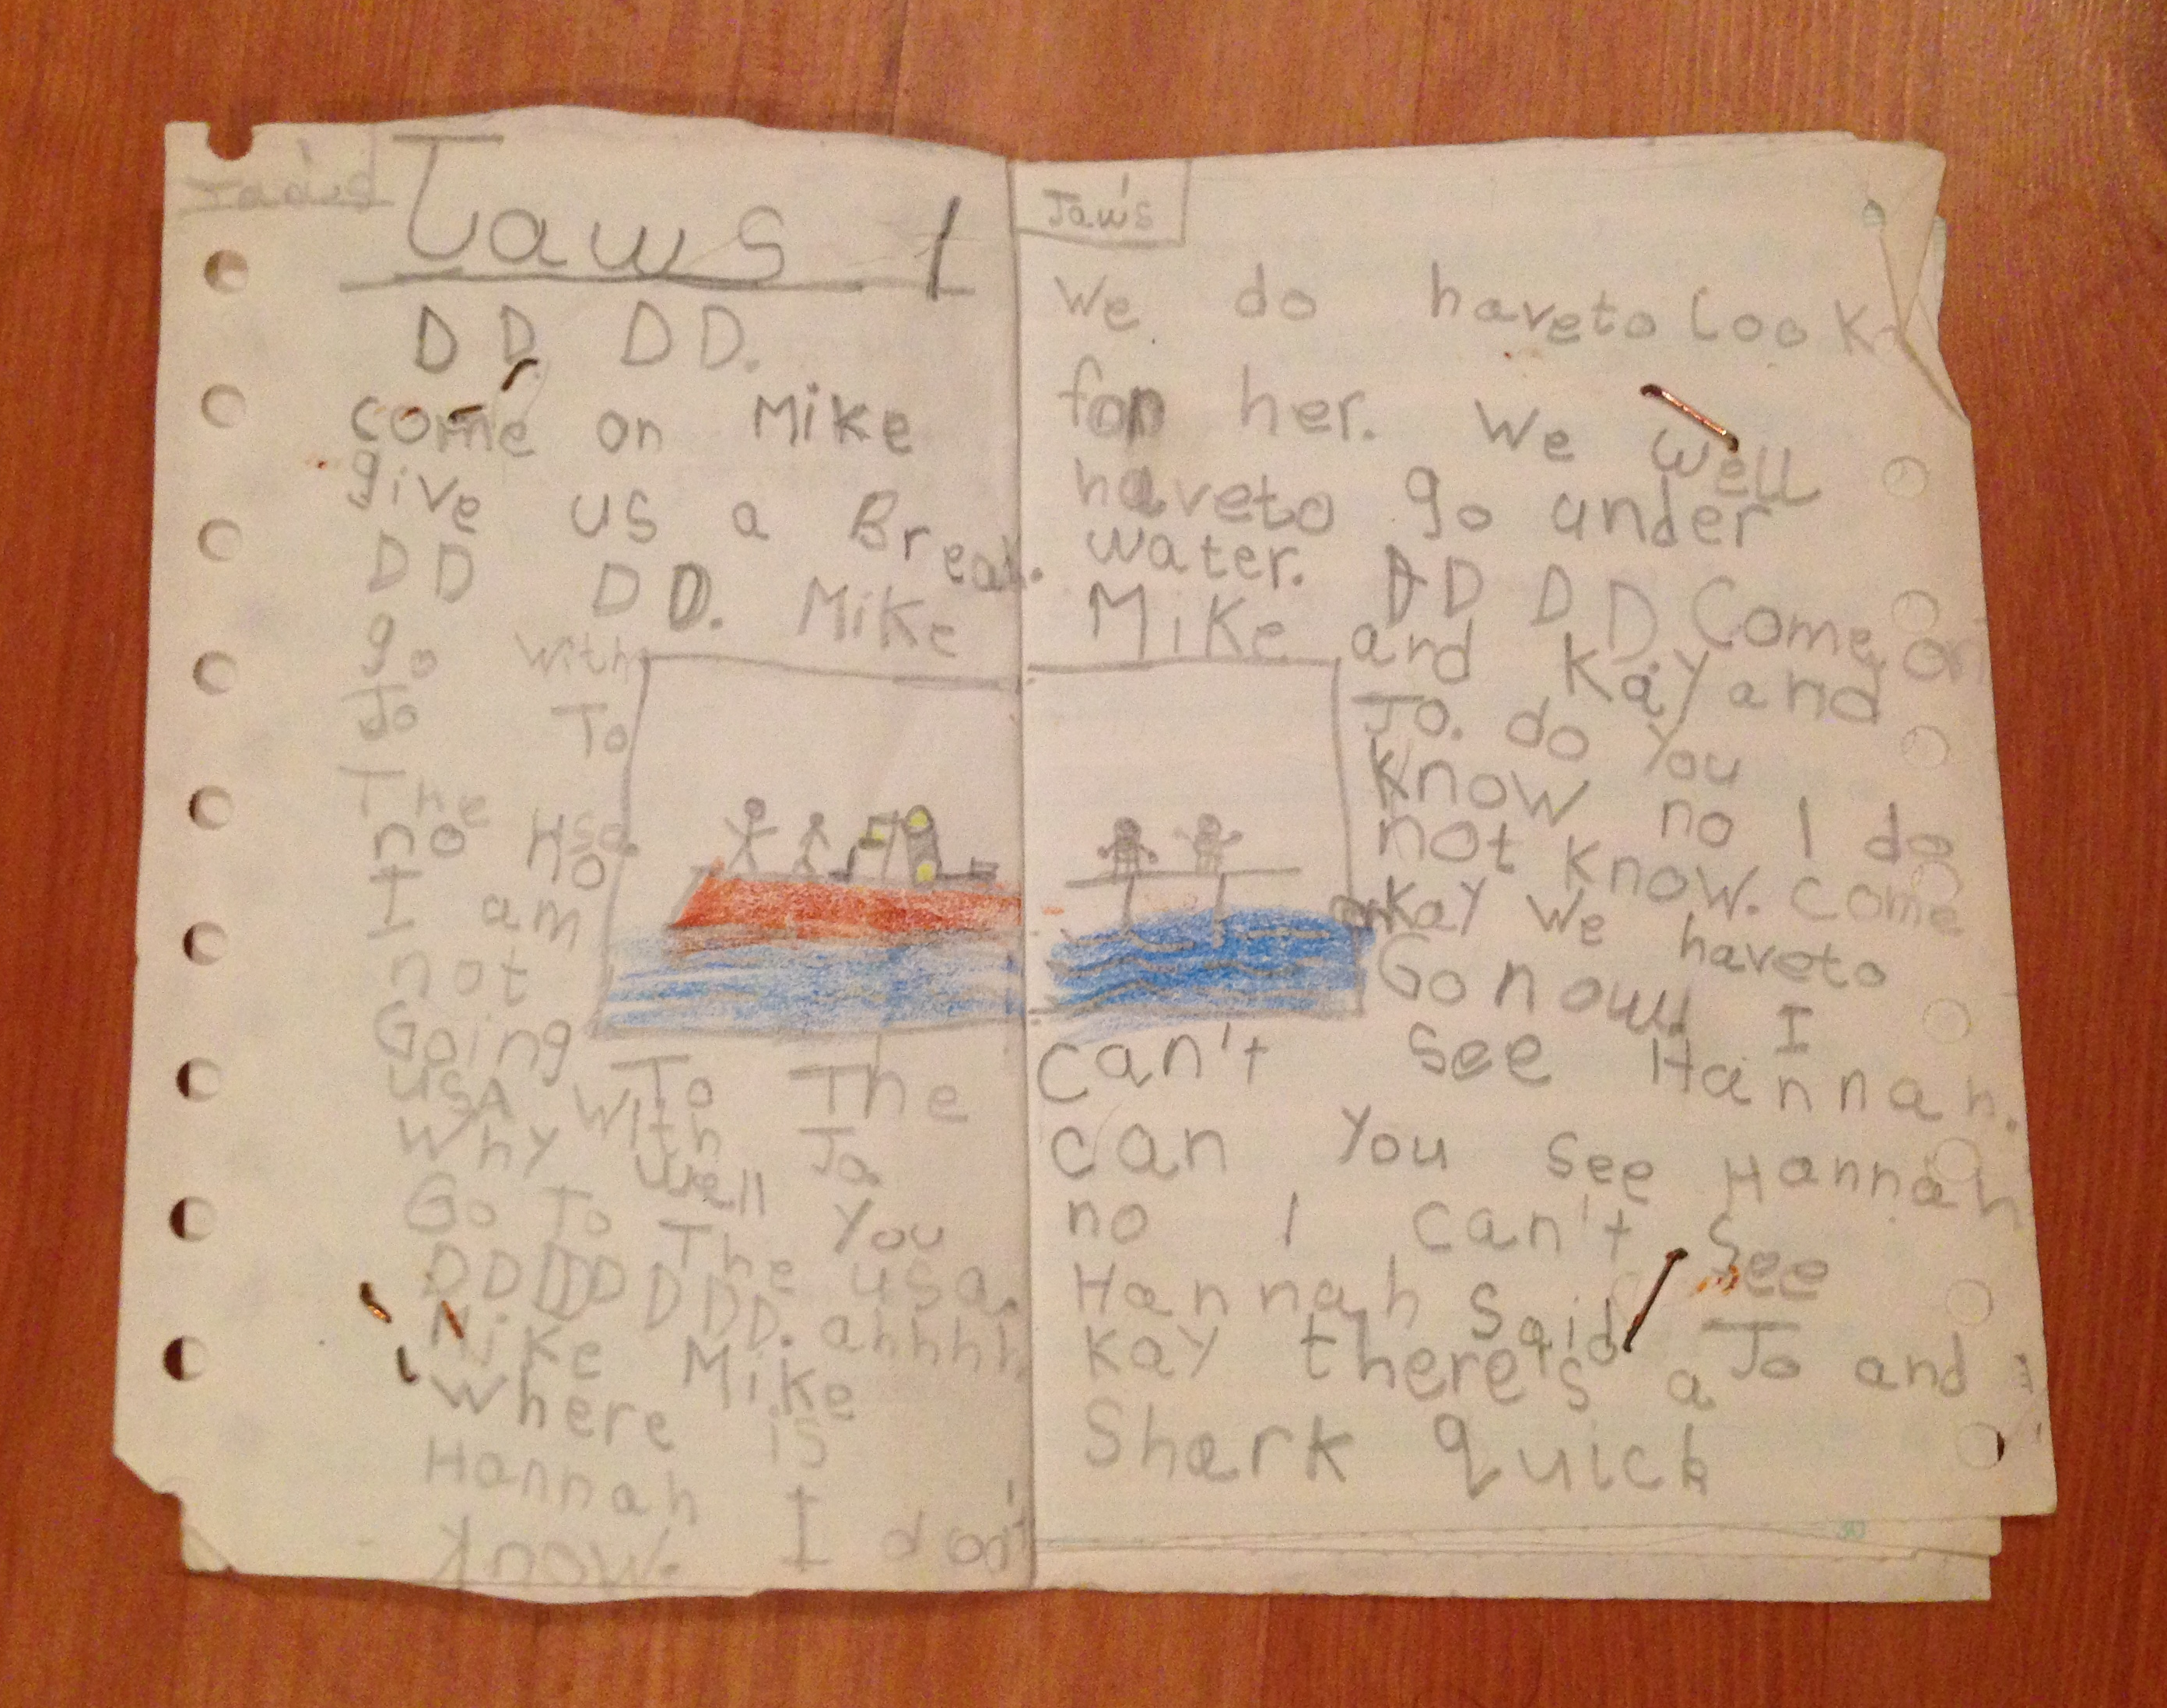 Jaws
Jaws 1
DD DD.
come on Mike
give us a Break.
DD DD. Mike
go with
Jo To
The usa.
no no
I am
not
Going To The
USA with Jo.
Why well you
Go To The usa.
DDDD DDD. ahhhh
Mike Mike
Where is
Hannah I don't
know.
Jaw's
We do haveto look
for her. We well
haveto go under
water. DD DD Come on
Mike and Kay and
Jo. do you
know no I do
not know. come
Kay we haveto
Go now! I
can't see Hannah.
can you see Hannah
no I can't see
Hannah said Jo and
Kay there's a
Shark quick